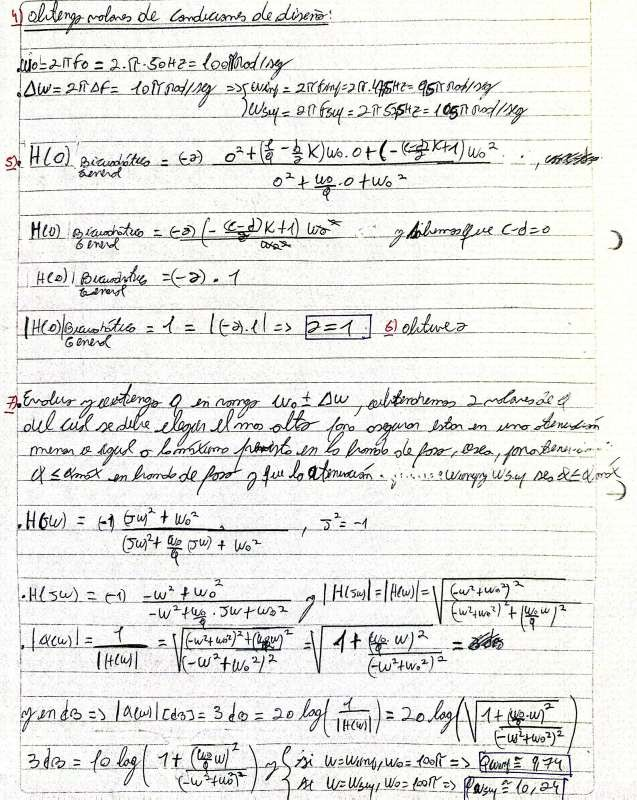 4) Obtengo valores de condiciones de diseño:
ω0 = 2πf0 = 2·π·50Hz = 100π rad/seg
Δω = 2πΔF = 10π rad/seg => { ωinf = 2πfinf = 2π·47,5Hz = 95π rad/seg
ωsup = 2πfsup = 2π52,5Hz = 105π rad/seg
5) H(0)| Bicuadrático General = (-a) (0² + (1/q - b/2 K)ω0·0 + (-(c-d)/2 K+1)ω0²) / (0² + ω0/q · 0 + ω0²)
H(0)| Bicuadrático General = (-a) (-(c-d)/2 K+1) ω0² / ω0² y sabemos que c-d=0
H(0)| Bicuadrático General = (-a) · 1
|H(0)| Bicuadrático General = 1 = |(-a)·1| => a = 1 6) obtuve a
7) Evaluo y obtengo q en rango ω0 ± Δω, obtendremos 2 valores de q
del cual se debe elegir el mas alto para asegurar estar en una atenuación
menor o igual a la máxima prevista en la banda de paso, osea,
α ≤ αmáx en banda de paso y que la atenuación ωinf y ωsup sea α ≤ αmáx
H(jω) = (-1) ((jω)² + ω0²) / ((jω)² + ω0/q (jω) + ω0²) , j² = -1
H(jω) = (-1) (-ω² + ω0²) / (-ω² + ω0/q · jω + ω0²) y |H(jω)| = |H(ω)| = √((-ω²+ω0²)² / ((-ω²+ω0²)² + (ω0/q ω)²))
|α(ω)| = 1/|H(ω)| = √(((-ω²+ω0²)² + (ω0/q ω)²) / (-ω²+ω0²)²) = √(1 + (ω0/q · ω)² / (-ω²+ω0²)²) =
y en dB => |α(ω)|[dB] = 3dB = 20 log(1/|H(ω)|) = 20 log(√(1 + (ω0/q ω)² / (-ω²+ω0²)²))
3dB = 10 log(1 + (ω0/q ω)² / (-ω²+ω0²)²) y { si ω=ωinf, ω0=100π => qωinf ≅ 9,74
si ω=ωsup, ω0=100π => qωsup ≅ 10,24